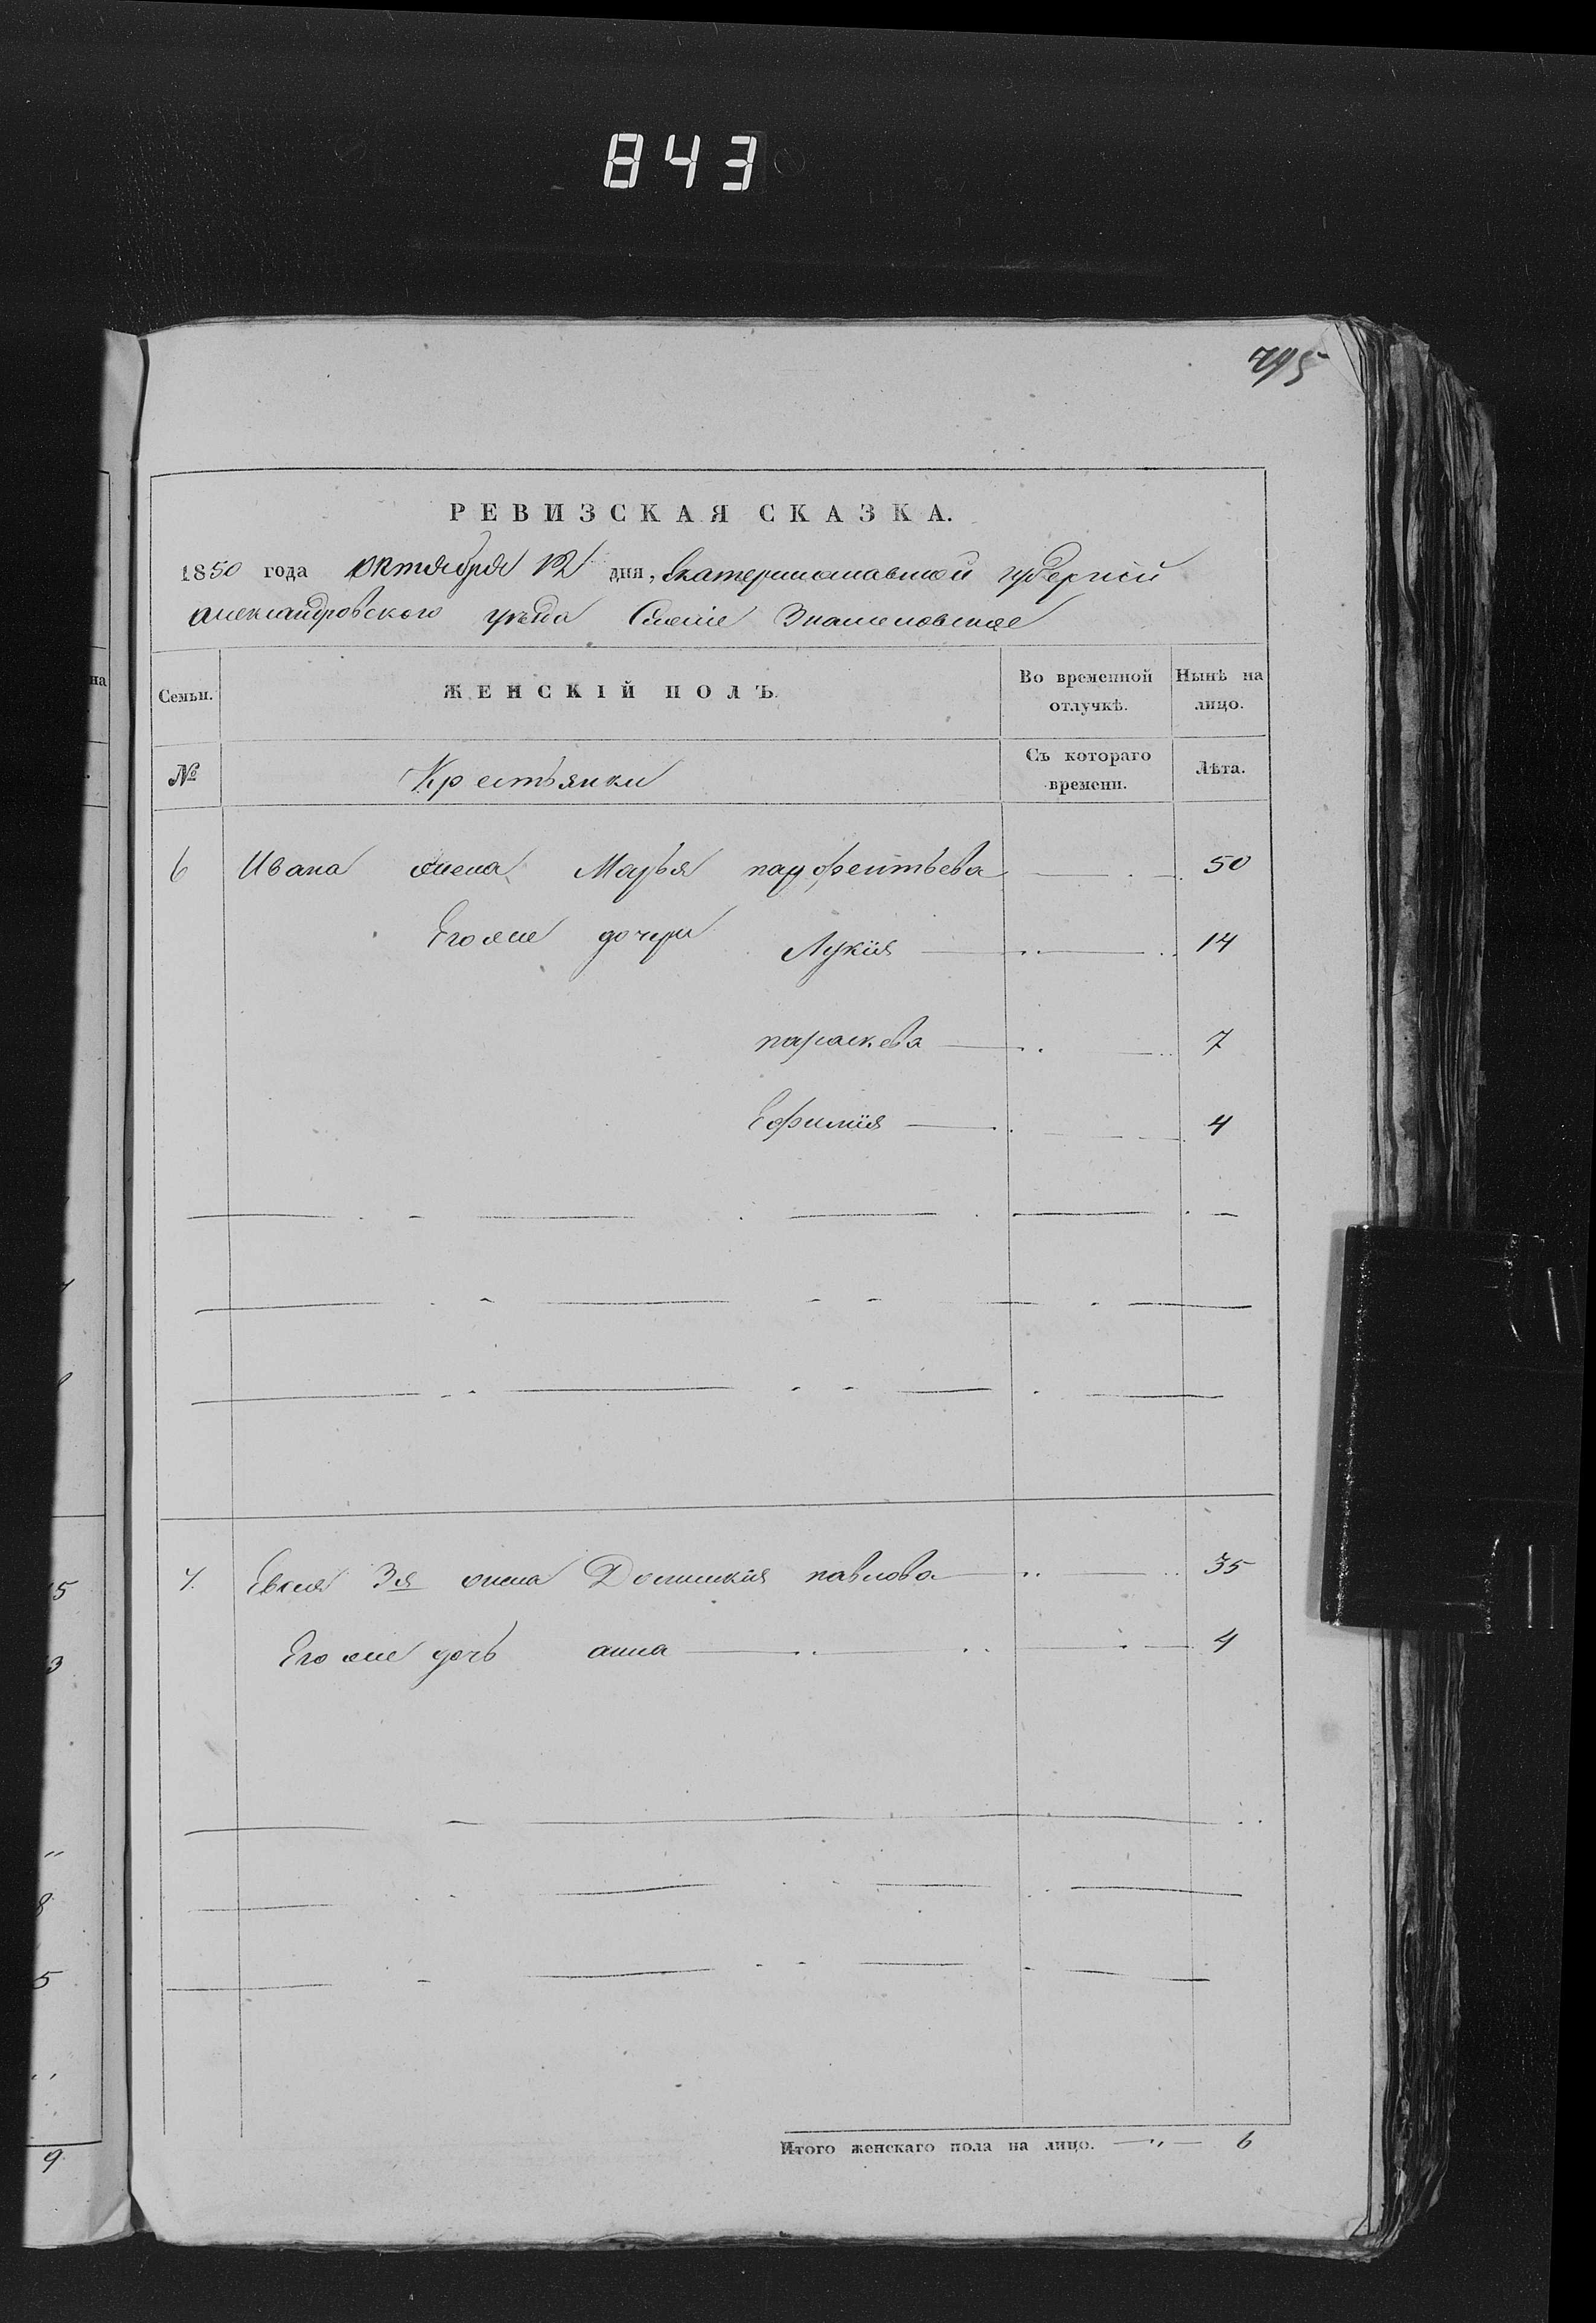 843
795
РЕВИЗСКАЯ СКАЗКА.
1850 года октября 12 дня, Екатеринославской губерніи
Александровского уѣзда Знаменовское
Семьи. ЖЕНСКІЙ ПОЛЪ. Во временной отлучкѣ. Нынѣ на лицо.
№ Крестьянки Съ котораго времени. Лѣта.
6 Ивана жена Марья парфентьева 50
Его же дочери Лукія 14
параскева 7
Ефимія 4
7. 3я жена Домникія павлова 35
Его же дочь анна 4
Итого женскаго пола на лицо. 6
на
5
3
8
5
9